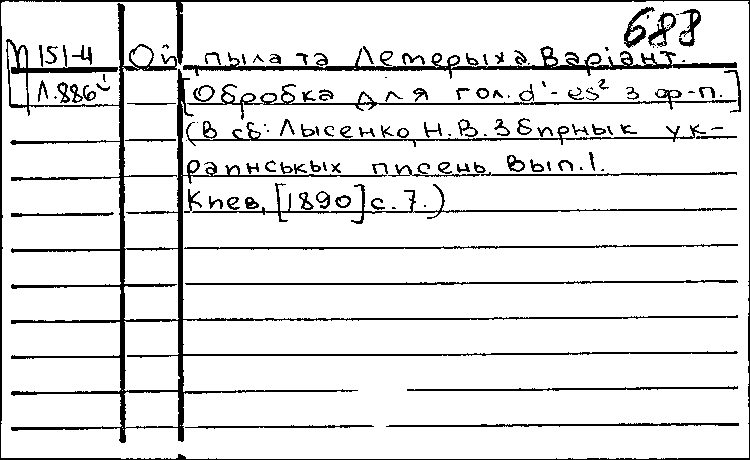 688
П 151-4 Ой, пыла та Лемерыха. Варіант.
Л.886 [Обробка для гол. d¹-es² з ф-п.]
(В сб: Лысенко, Н.В. Збирнык ук-
раинськых писень. Вып. 1.
Киев, [1890] с. 7.)